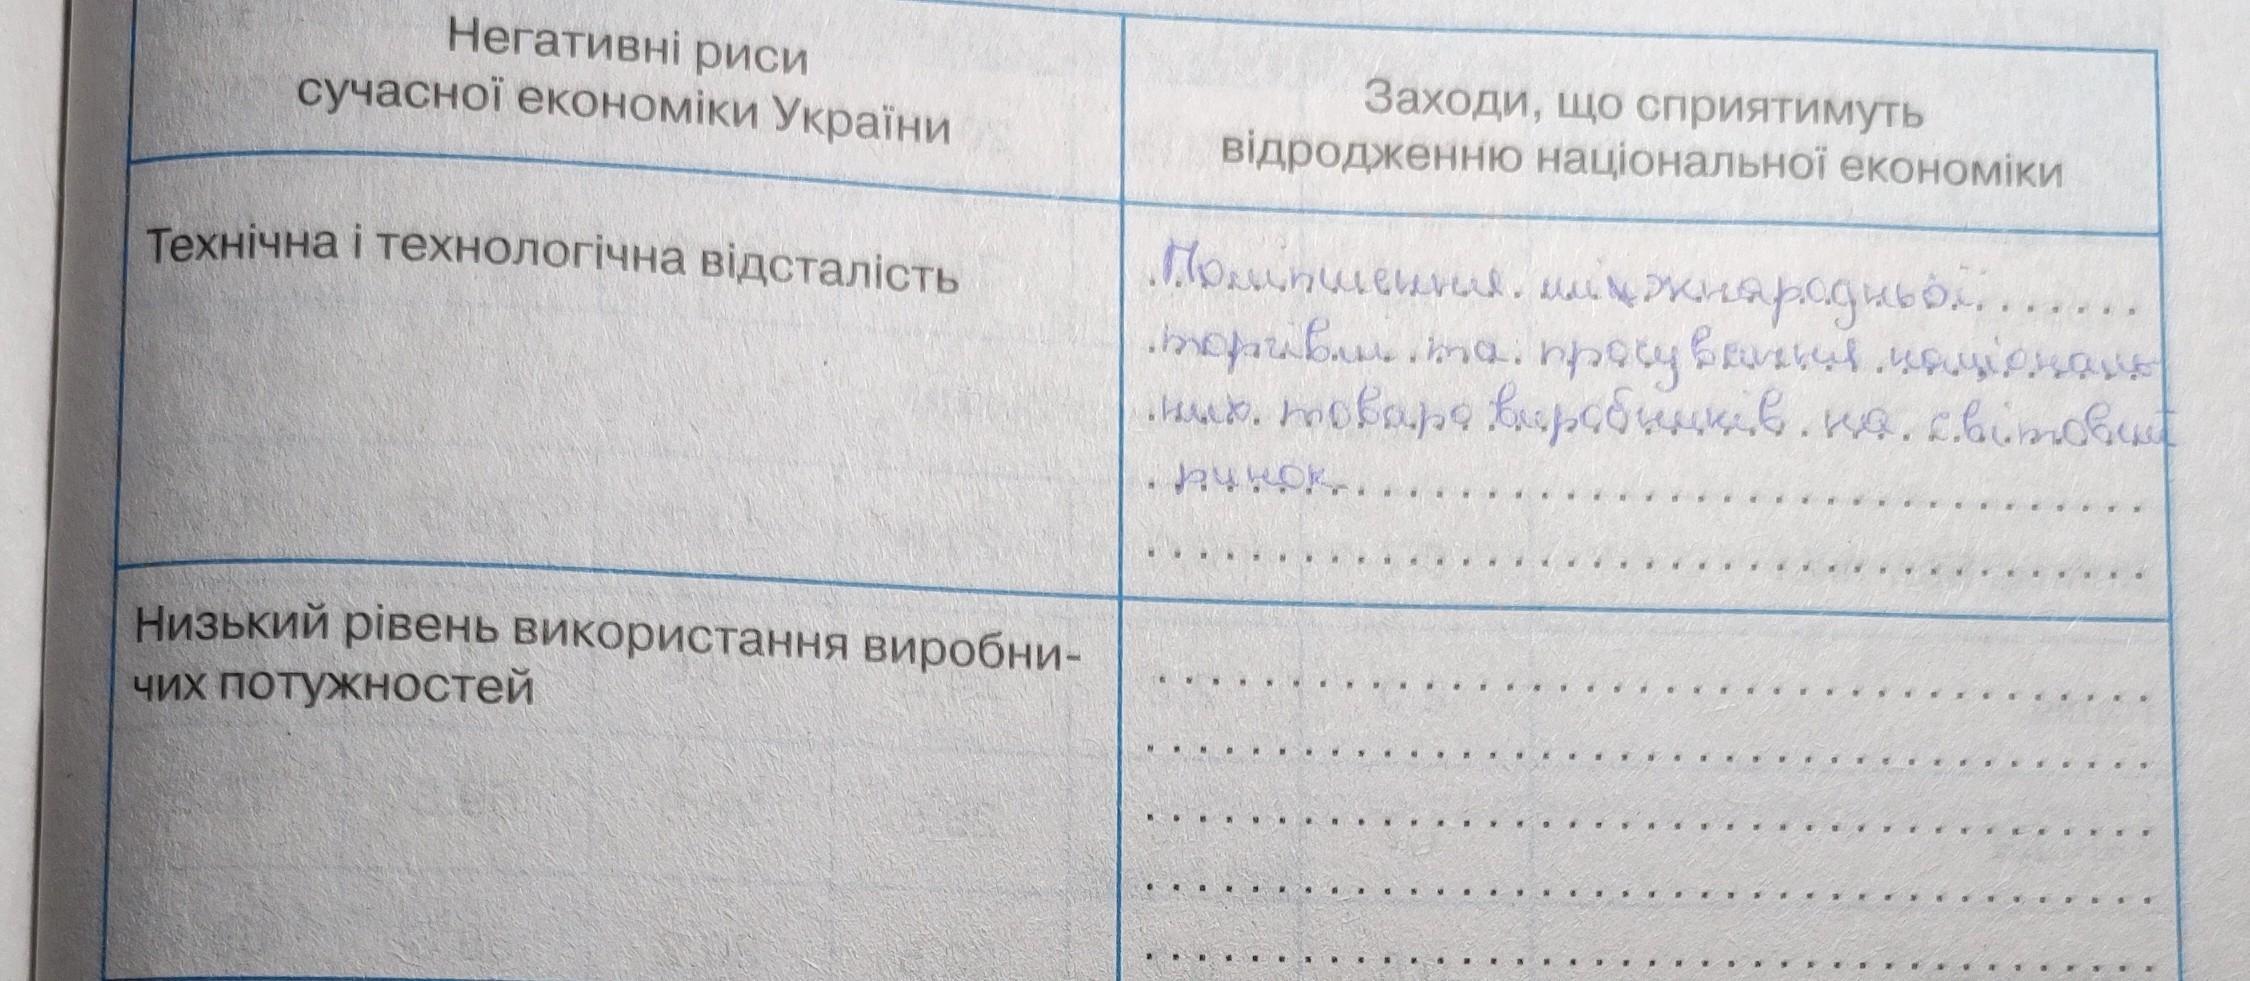 Негативні риси
сучасної економіки України
Заходи, що сприятимуть
відродженню національної економіки
Технічна і технологічна відсталість
Поліпшення міжнародньої
торгівлі та просування національ
них товаро виробників на світовий
ринок
Низький рівень використання виробни-
чих потужностей